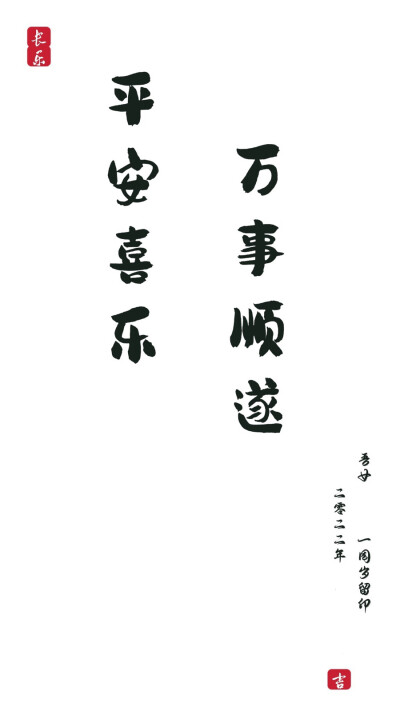 长乐
平安喜乐
万事顺遂
吾女 一周岁留印
二零二二年
吉